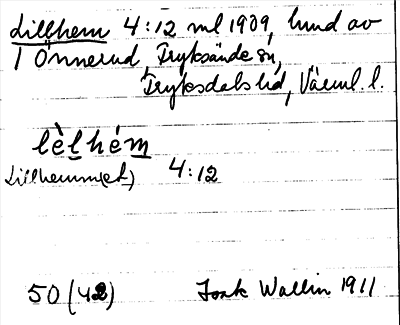 Lillhem 4:12 ml 1909, lund av
1 Önnerud, Fryksände sn,
Fryksdals hd, Värml. l.
lèlhém
Lillhemm(et) 4:12
50 (42)
Joak Wallin 1911